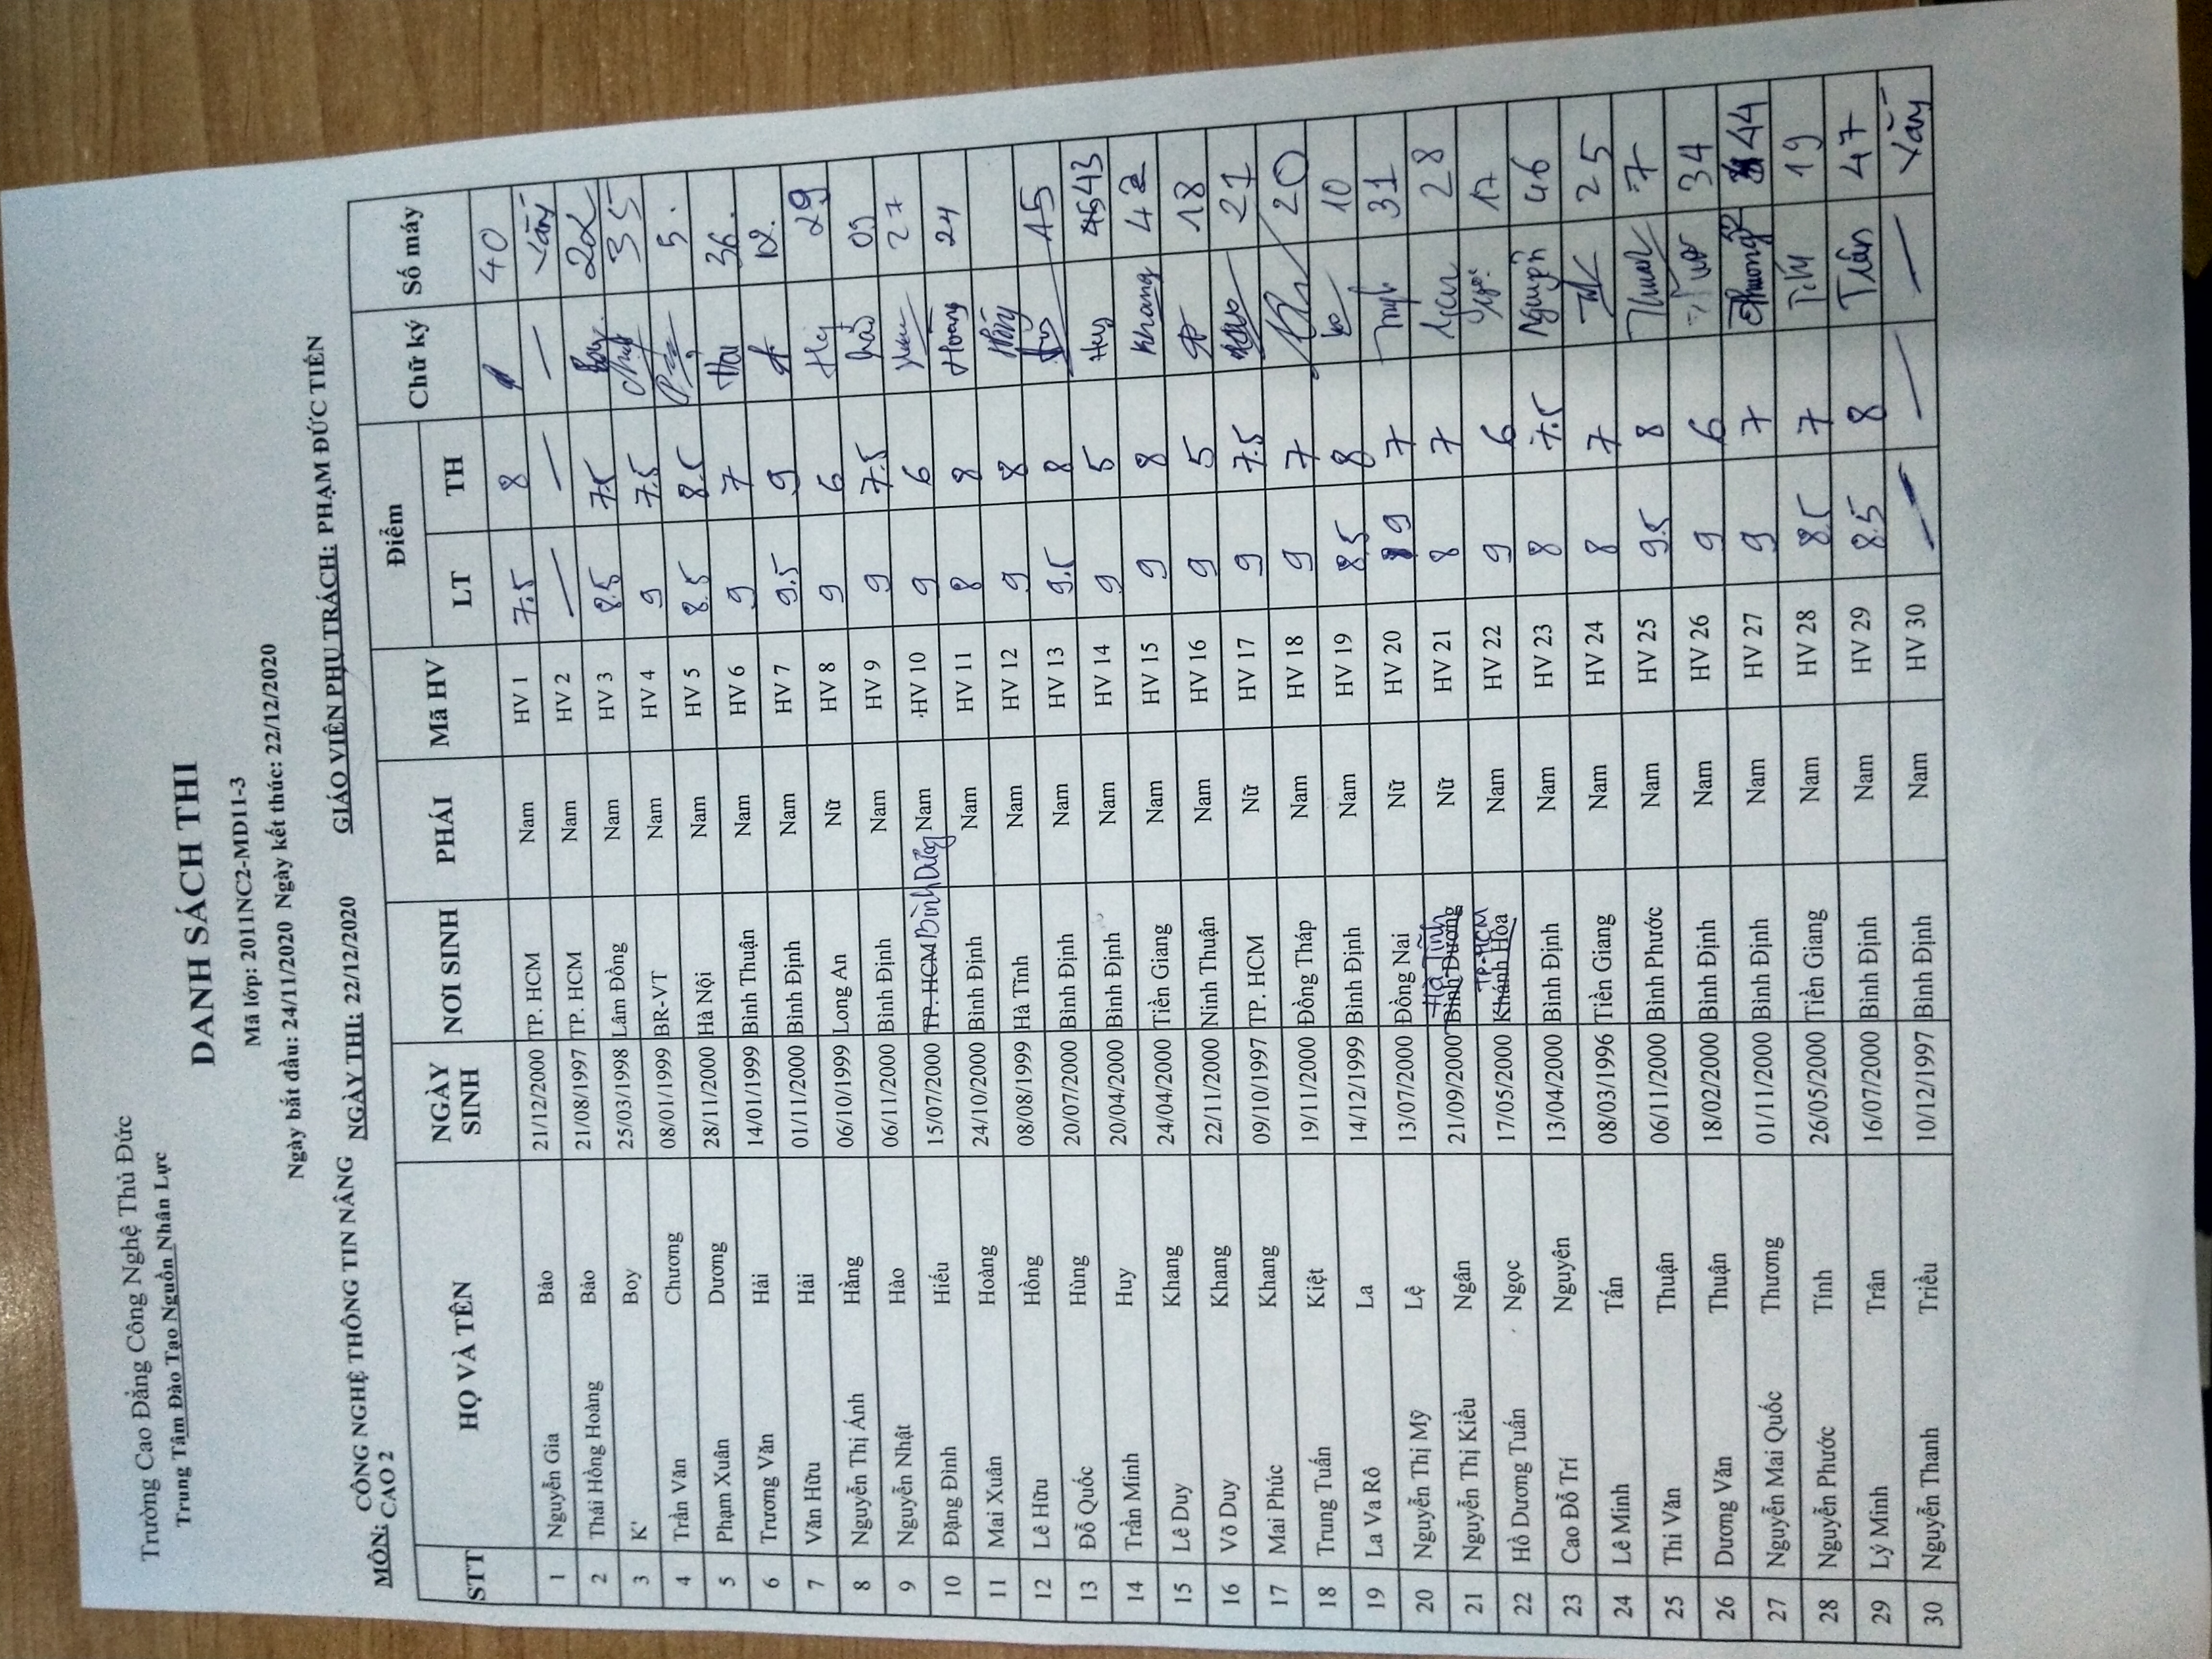 Trường Cao Đẳng Công Nghệ Thủ Đức
Trung Tâm Đào Tạo Nguồn Nhân Lực
DANH SÁCH THI
Mã lớp: 2011NC2-MD11-3
Ngày bắt đầu: 24/11/2020 Ngày kết thúc: 22/12/2020
MÔN: CÔNG NGHỆ THÔNG TIN NÂNG CAO 2 NGÀY THI: 22/12/2020 GIÁO VIÊN PHỤ TRÁCH: PHẠM ĐỨC TIẾN
STT HỌ VÀ TÊN NGÀY SINH NƠI SINH PHÁI Mã HV Điểm Chữ ký Số máy
LT TH
1 Nguyễn Gia Bảo 21/12/2000 TP. HCM Nam HV 1 7.5 8 40
2 Thái Hồng Hoàng Bảo 21/08/1997 TP. HCM Nam HV 2 — — — Vắng
3 K' Boy 25/03/1998 Lâm Đồng Nam HV 3 8.5 7.5 Boy 22
4 Trần Văn Chương 08/01/1999 BR-VT Nam HV 4 9 7.5 35
5 Phạm Xuân Dương 28/11/2000 Hà Nội Nam HV 5 8.5 8.5 5.
6 Trương Văn Hải 14/01/1999 Bình Thuận Nam HV 6 9 7 Hải 36.
7 Văn Hữu Hải 01/11/2000 Bình Định Nam HV 7 9.5 9 12.
8 Nguyễn Thị Ánh Hằng 06/10/1999 Long An Nữ HV 8 9 6 29
9 Nguyễn Nhật Hào 06/11/2000 Bình Định Nam HV 9 9 7.5 hào 09
10 Đặng Đình Hiếu 15/07/2000 TP. HCM Bình Dương Nam HV 10 9 6 27
11 Mai Xuân Hoàng 24/10/2000 Bình Định Nam HV 11 8 8 Hoàng 24
12 Lê Hữu Hồng 08/08/1999 Hà Tĩnh Nam HV 12 9 8
13 Đỗ Quốc Hùng 20/07/2000 Bình Định Nam HV 13 9.5 8 15
14 Trần Minh Huy 20/04/2000 Bình Định Nam HV 14 9 5 Huy 45 43
15 Lê Duy Khang 24/04/2000 Tiền Giang Nam HV 15 9 8 Khang 42
16 Võ Duy Khang 22/11/2000 Ninh Thuận Nam HV 16 9 5 18
17 Mai Phúc Khang 09/10/1997 TP. HCM Nữ HV 17 9 7.5 21
18 Trung Tuấn Kiệt 19/11/2000 Đồng Tháp Nam HV 18 9 7 20
19 La Va Rô La 14/12/1999 Bình Định Nam HV 19 8.5 8 10
20 Nguyễn Thị Mỹ Lệ 13/07/2000 Đồng Nai Nữ HV 20 9 7 31
21 Nguyễn Thị Kiều Ngân 21/09/2000 Bình Dương Hà Tĩnh Nữ HV 21 8 7 Ngân 28
22 Hồ Dương Tuấn Ngọc 17/05/2000 Khánh Hòa TP.HCM Nam HV 22 9 6 17
23 Cao Đỗ Trí Nguyên 13/04/2000 Bình Định Nam HV 23 8 7.5 Nguyên 46
24 Lê Minh Tấn 08/03/1996 Tiền Giang Nam HV 24 8 7 25
25 Thi Văn Thuận 06/11/2000 Bình Phước Nam HV 25 9.5 8 Thuận 7
26 Dương Văn Thuận 18/02/2000 Bình Định Nam HV 26 9 6 34
27 Nguyễn Mai Quốc Thương 01/11/2000 Bình Định Nam HV 27 9 7 Thương 44
28 Nguyễn Phước Tính 26/05/2000 Tiền Giang Nam HV 28 8.5 7 Tính 19
29 Lý Minh Trân 16/07/2000 Bình Định Nam HV 29 8.5 8 Trân 47
30 Nguyễn Thanh Triều 10/12/1997 Bình Định Nam HV 30 — — — Vắng